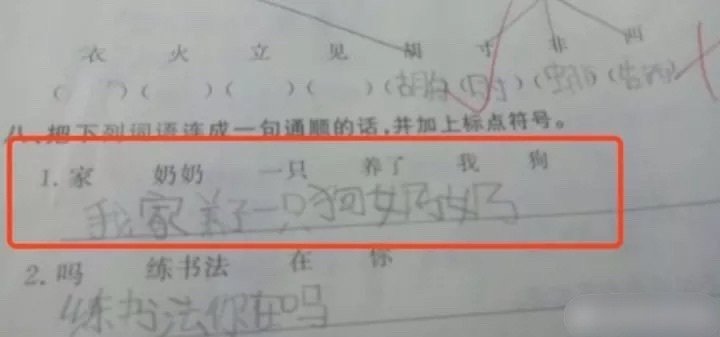 衣 火 立 见 胡 寸 非 西
( )( )( )( )(胡 ( ( (
八、把下列词语连成一句通顺的话,并加上标点符号。
1. 家 奶奶 一只 养了 我 狗
我家养了一只狗奶奶
2. 吗 练书法 在 你
练书法你在吗